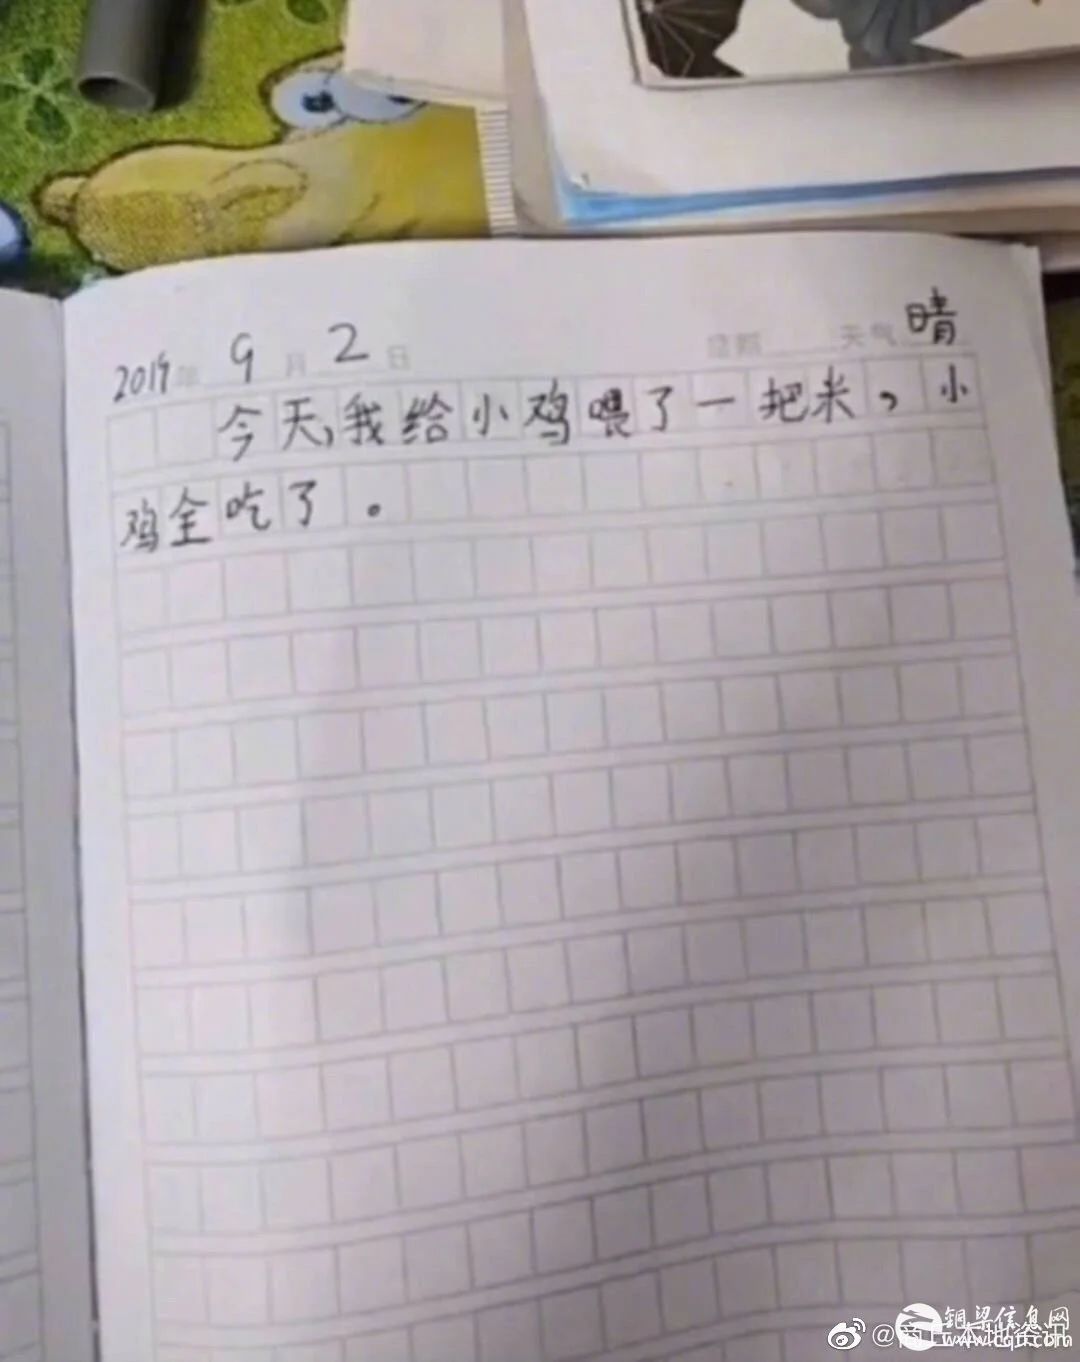 2019年 9月 2日 星期 天气 晴
今天,我给小鸡喂了一把米,小
鸡全吃了。
铜梁信息网
www.cqtl.com